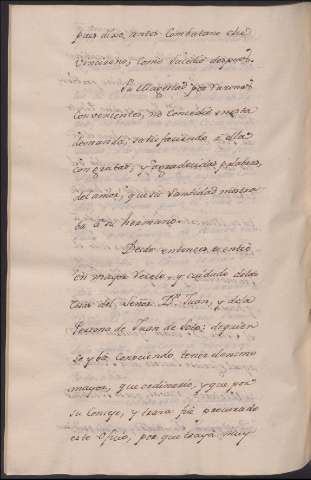 pues dixo, antes combatano el de
Vinciseno, como sucedió despues.
Su Magestad por razones
convenientes, no concedió en esta
demanda, satisfaciendo a ella
con gratas, y agradecidas palabras,
del amor, que su Santidad mostra
ba à su hermano.
Desde entonces se entró
en mayor recelo, y cuidado de las
cosas del Señor D.n Juan, y de la
Persona de Juan de Soto; de quien
se yba conociendo tener animo
mayor, que ordinario, y que por
su Consejo, y traza fué procurado
este oficio, por que traya muy